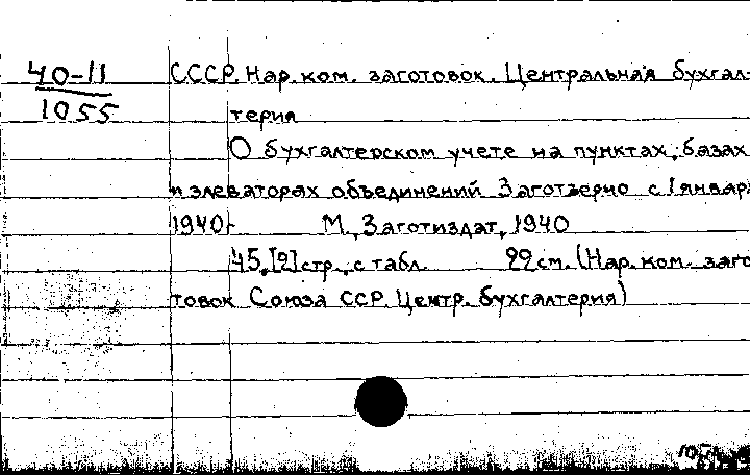 40-11
1055
СССР. Нар. ком. заготовок. Центральная бухгал-
терия
О бухгалтерском учете на пунктах, базах
и элеваторах объединений Заготзерно с 1 январ
1940г. М., Заготиздат, 1940
45, [2] стр., с табл. 22 см. (Нар. ком. заго
товок Союза ССР. Центр. бухгалтерия)